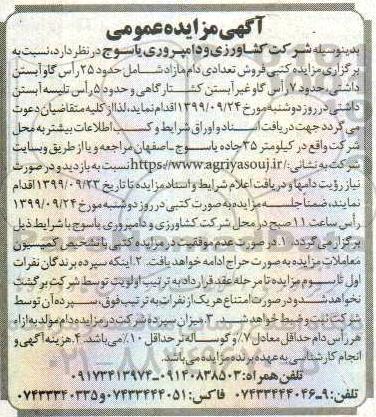 آگهی مزایده عمومی
بدینوسیله شرکت کشاورزی و دامپروری یاسوج در نظر دارد، نسبت به
برگزاری مزایده کتبی فروش تعدادی دام مازاد شامل حدود ۲۵ رأس گاو آبستن
داشتی، حدود ۷ رأس گاو غیر آبستن کشتار گاهی و حدود ۵ رأس تلیسه آبستن
داشتی در روز دوشنبه مورخ ۱۳۹۹/۰۹/۲۴ اقدام نماید، لذا از کلیه متقاضیان دعوت
می گردد جهت دریافت اسناد و اوراق شرایط و کسب اطلاعات بیشتر به محل
شرکت واقع در کیلومتر ۳۵ جاده یاسوج ـ اصفهان مراجعه و یا از طریق وبسایت
شرکت به نشانی: https://www.agriyasouj.ir/ نسبت به بازدید و در صورت
نیاز رؤیت دامها و دریافت اعلام شرایط و اسناد مزایده تا تاریخ ۱۳۹۹/۰۹/۲۳ اقدام
نمایند، ضمناً جلسه مزایده به صورت کتبی در روز دوشنبه مورخ ۱۳۹۹/۰۹/۲۴
رأس ساعت ۱۱ صبح در محل شرکت کشاورزی و دامپروری یاسوج با شرایط ذیل
برگزار می گردد. ۱. در صورت عدم موفقیت در مزایده کتبی با تشخیص کمیسیون
معاملات مزایده به صورت حراج ادامه خواهد یافت. ۲. اینکه سپرده برندگان نفرات
اول تا سوم مزایده تا مرحله عقد قرارداد به ترتیب اولویت توسط شرکت برگشت
نخواهد شد و در صورت امتناع هر یک از نفرات به ترتیب فوق، سپرده آن توسط
شرکت ثبت و ضبط خواهد شد. ۳. میزان سپرده شرکت در مزایده دام مولد به ازاء
هر رأس دام حداقل معادل ۷٪ و گوساله نر حداقل ۱۰٪ می باشد. ۴. هزینه آگهی و
انجام کارشناسی به عهده برنده مزایده می باشد.
تلفن همراه: ۰۹۱۴۰۸۳۸۵۰۳ ـ ۰۹۱۷۳۴۱۳۹۷۴
تلفن: ۹ـ۰۷۴۳۳۴۴۴۰۴۶ فاکس: ۰۷۴۳۳۴۴۴۰۵۱ و ۰۷۴۳۳۳۴۰۳۳۵